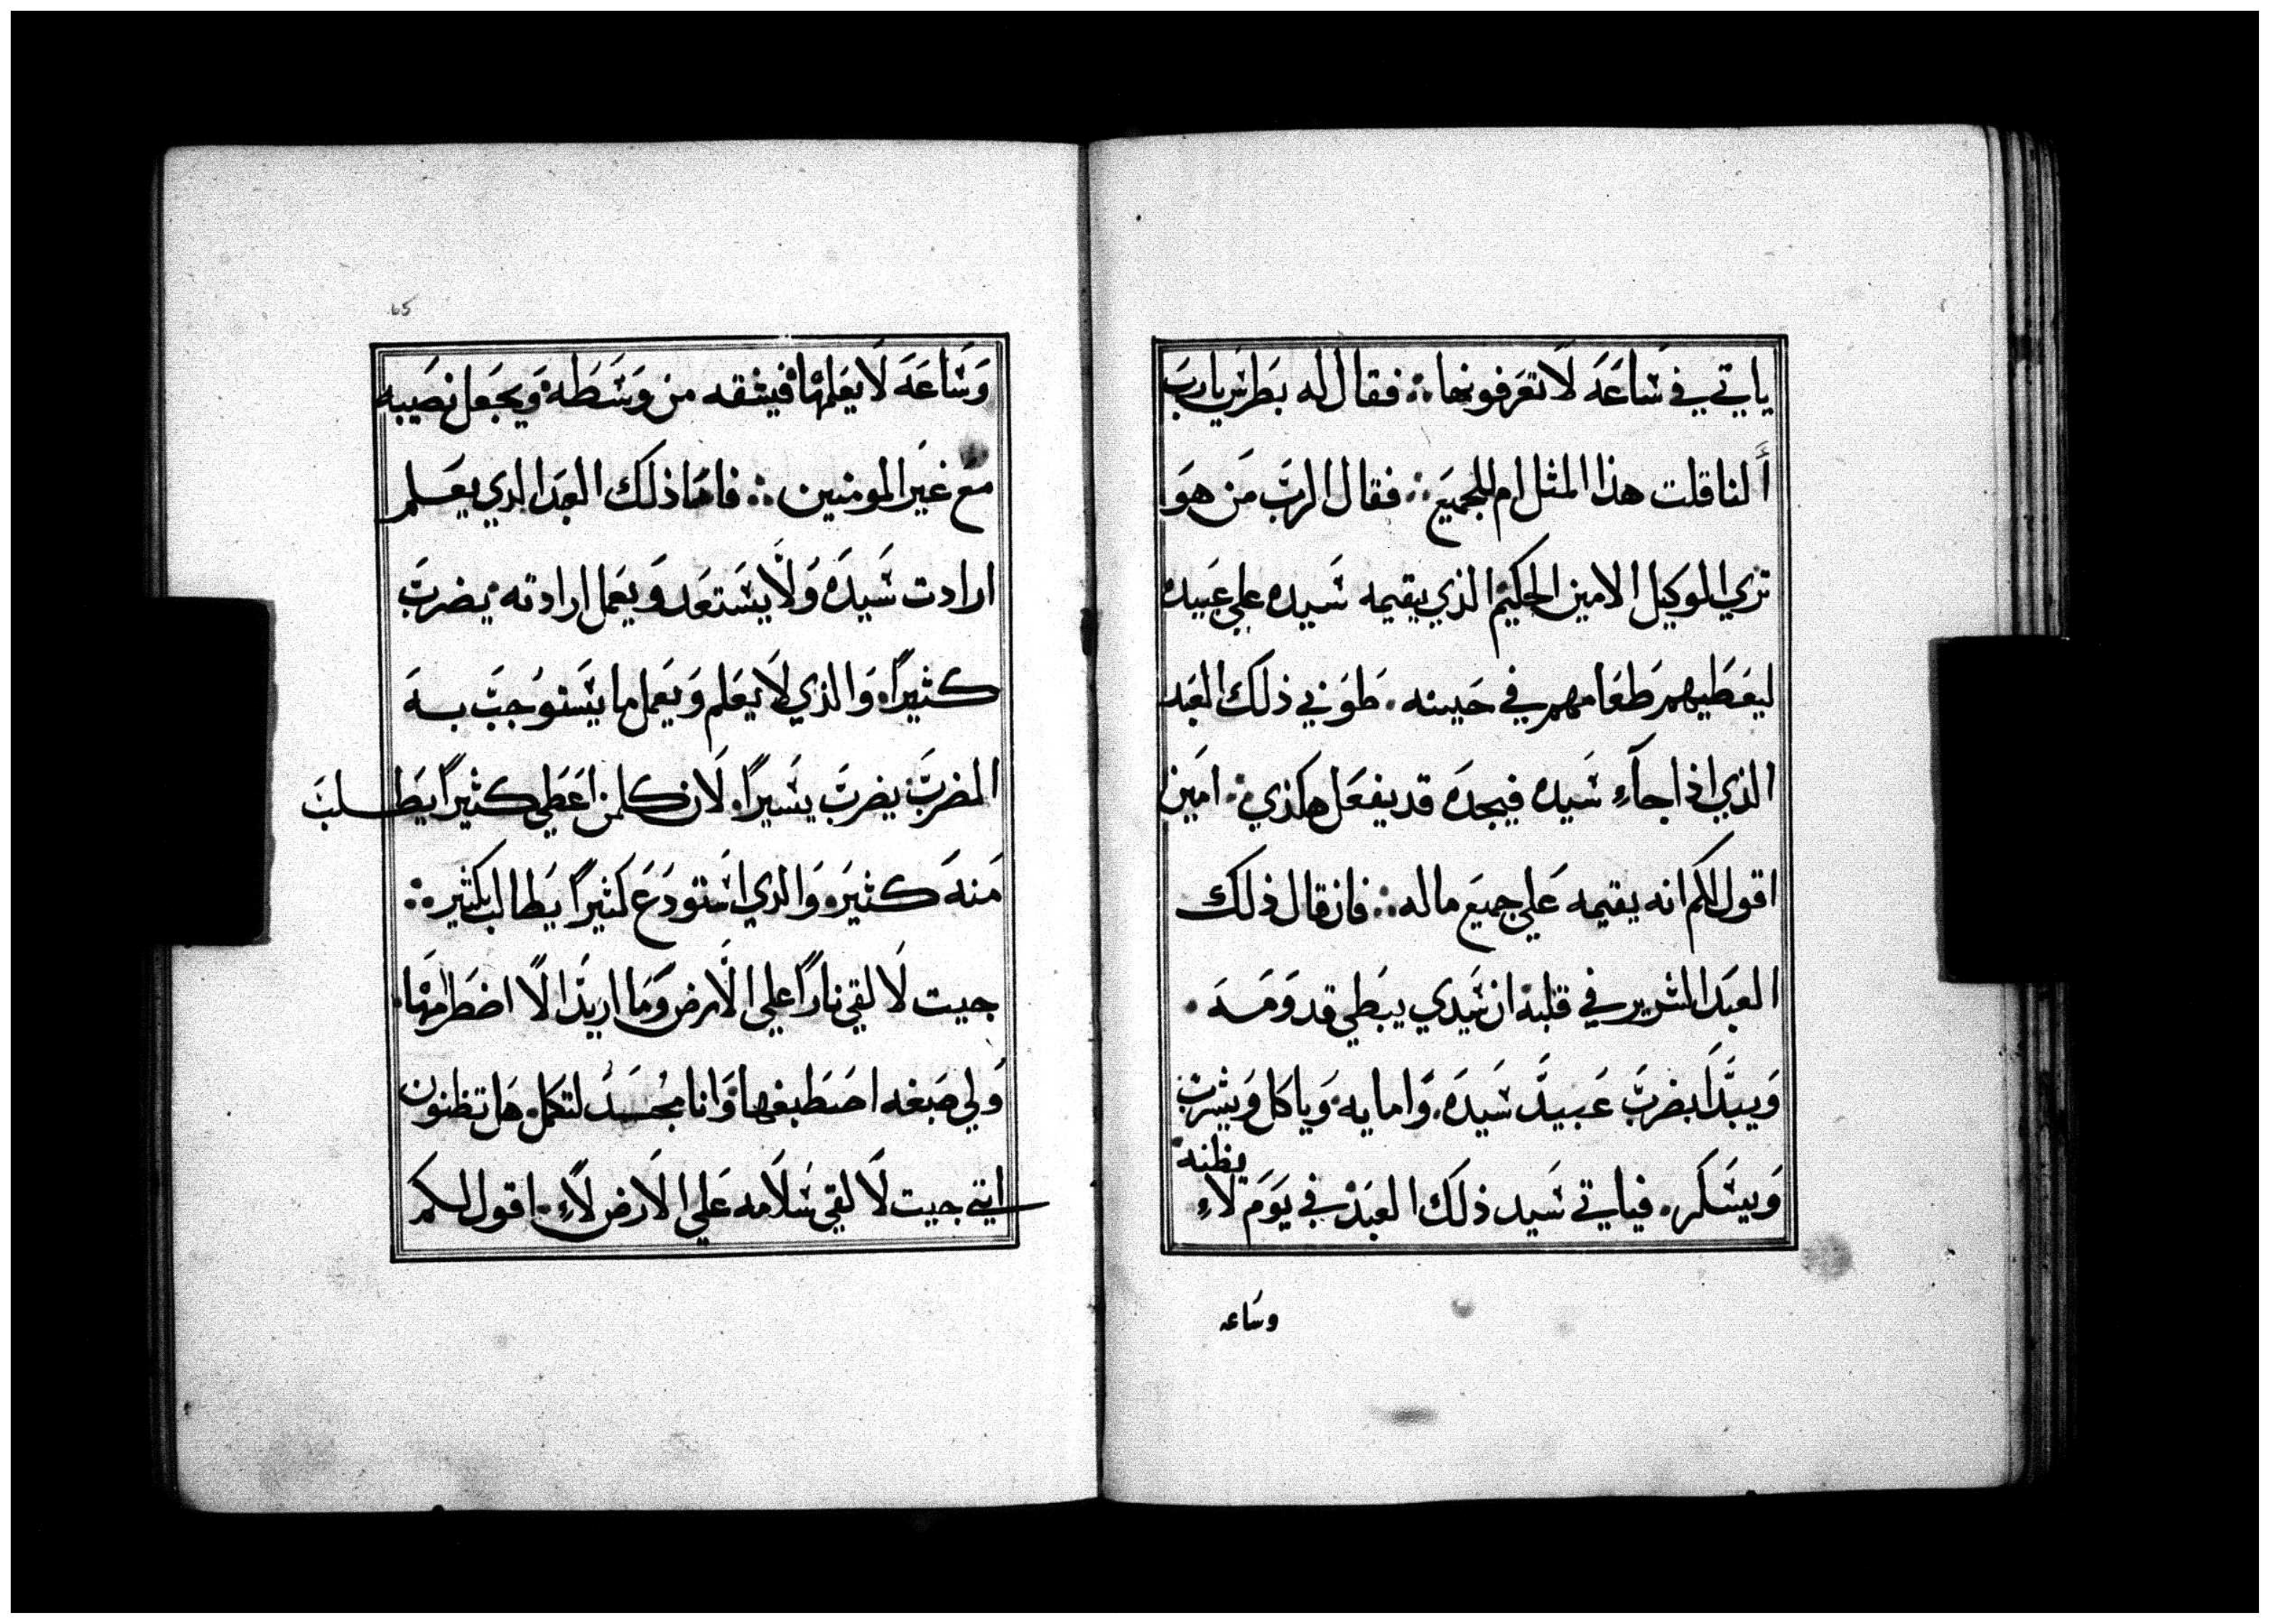 ياتي في ساعة لا تعرفونها ؞ فقال له بطرس يارب
ألنا قلت هذا المثل ام للجميع ؞ فقال الرب من هو
تري الوكيل الامين الحكيم الذي يقيمه سيده علي عبيده
ليعطيهم طعامهم في حينه . طوبي ذلك العبد
الذي اذا جآء سيده فيجده قد يفعل هكذي ؞ امين
اقول لكم انه يقيمه علي جميع ماله ؞ فان قال ذلك
العبد الشرير في قلبه ان سيدي يبطي قدومه .
ويبدا بضرب عبيد سيده . وامايه وياكل ويشرب
ويسكر . فياتي سيد ذلك العبد في يوم لاء يظنه
وساعه
65
وساعة لا يعلمها فيشقه من وسطه ويجعل نصيبه
مع غير المومنين ؞ فاما ذلك العبد الدي يعلم
ارادت سيده ولا يستعد ويعمل ارادته يضرب
كثيراً والذي لا يعلم ويعمل ما يستوجب به
الضرب يضرب يسيراً . لان كلمن اعطي كثيراً يطلب
منه كثيره والدي استودع كثيراً يطالب بكثير ؞
جيت لالقي ناراً علي الارض وما اريد الا اضطرامها .
ولي صبغه اصطبغها وانا مجسد لتكمل هل تظنون
انني جيت لالقي سلامه علي الارض لاء . اقول لكم